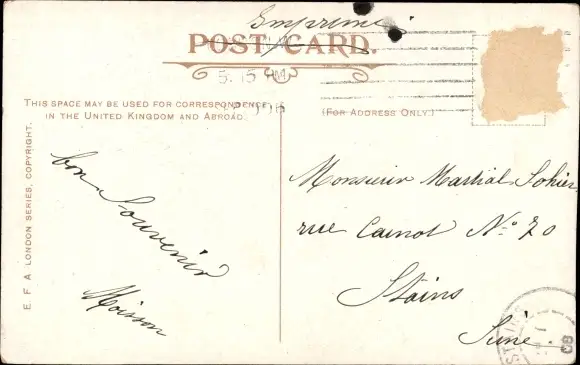 Imprimé
POST CARD.
5.15 PM
THIS SPACE MAY BE USED FOR CORRESPONDENCE
IN THE UNITED KINGDOM AND ABROAD.
(FOR ADDRESS ONLY.)
E F A LONDON SERIES, COPYRIGHT.
bon Souvenir
Moisson
Monsieur Martial Sohier
rue Carnot No 70
Stains
Seine
08